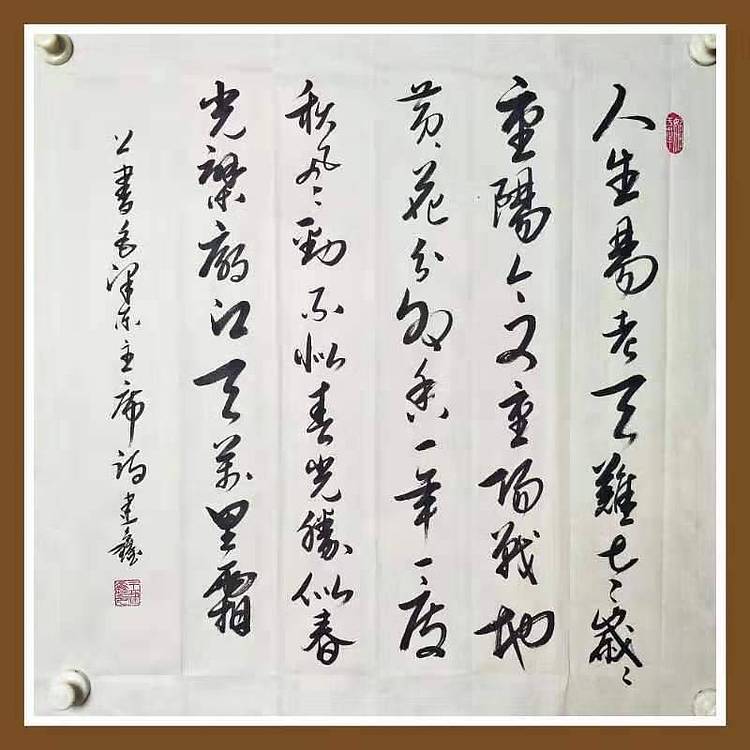 人生易老天難老歲〻
重陽今又重陽戰地
黄花分外香一年一度
秋風勁不似春光勝似春
光寥廓江天萬里霜
書毛澤東主席詩建